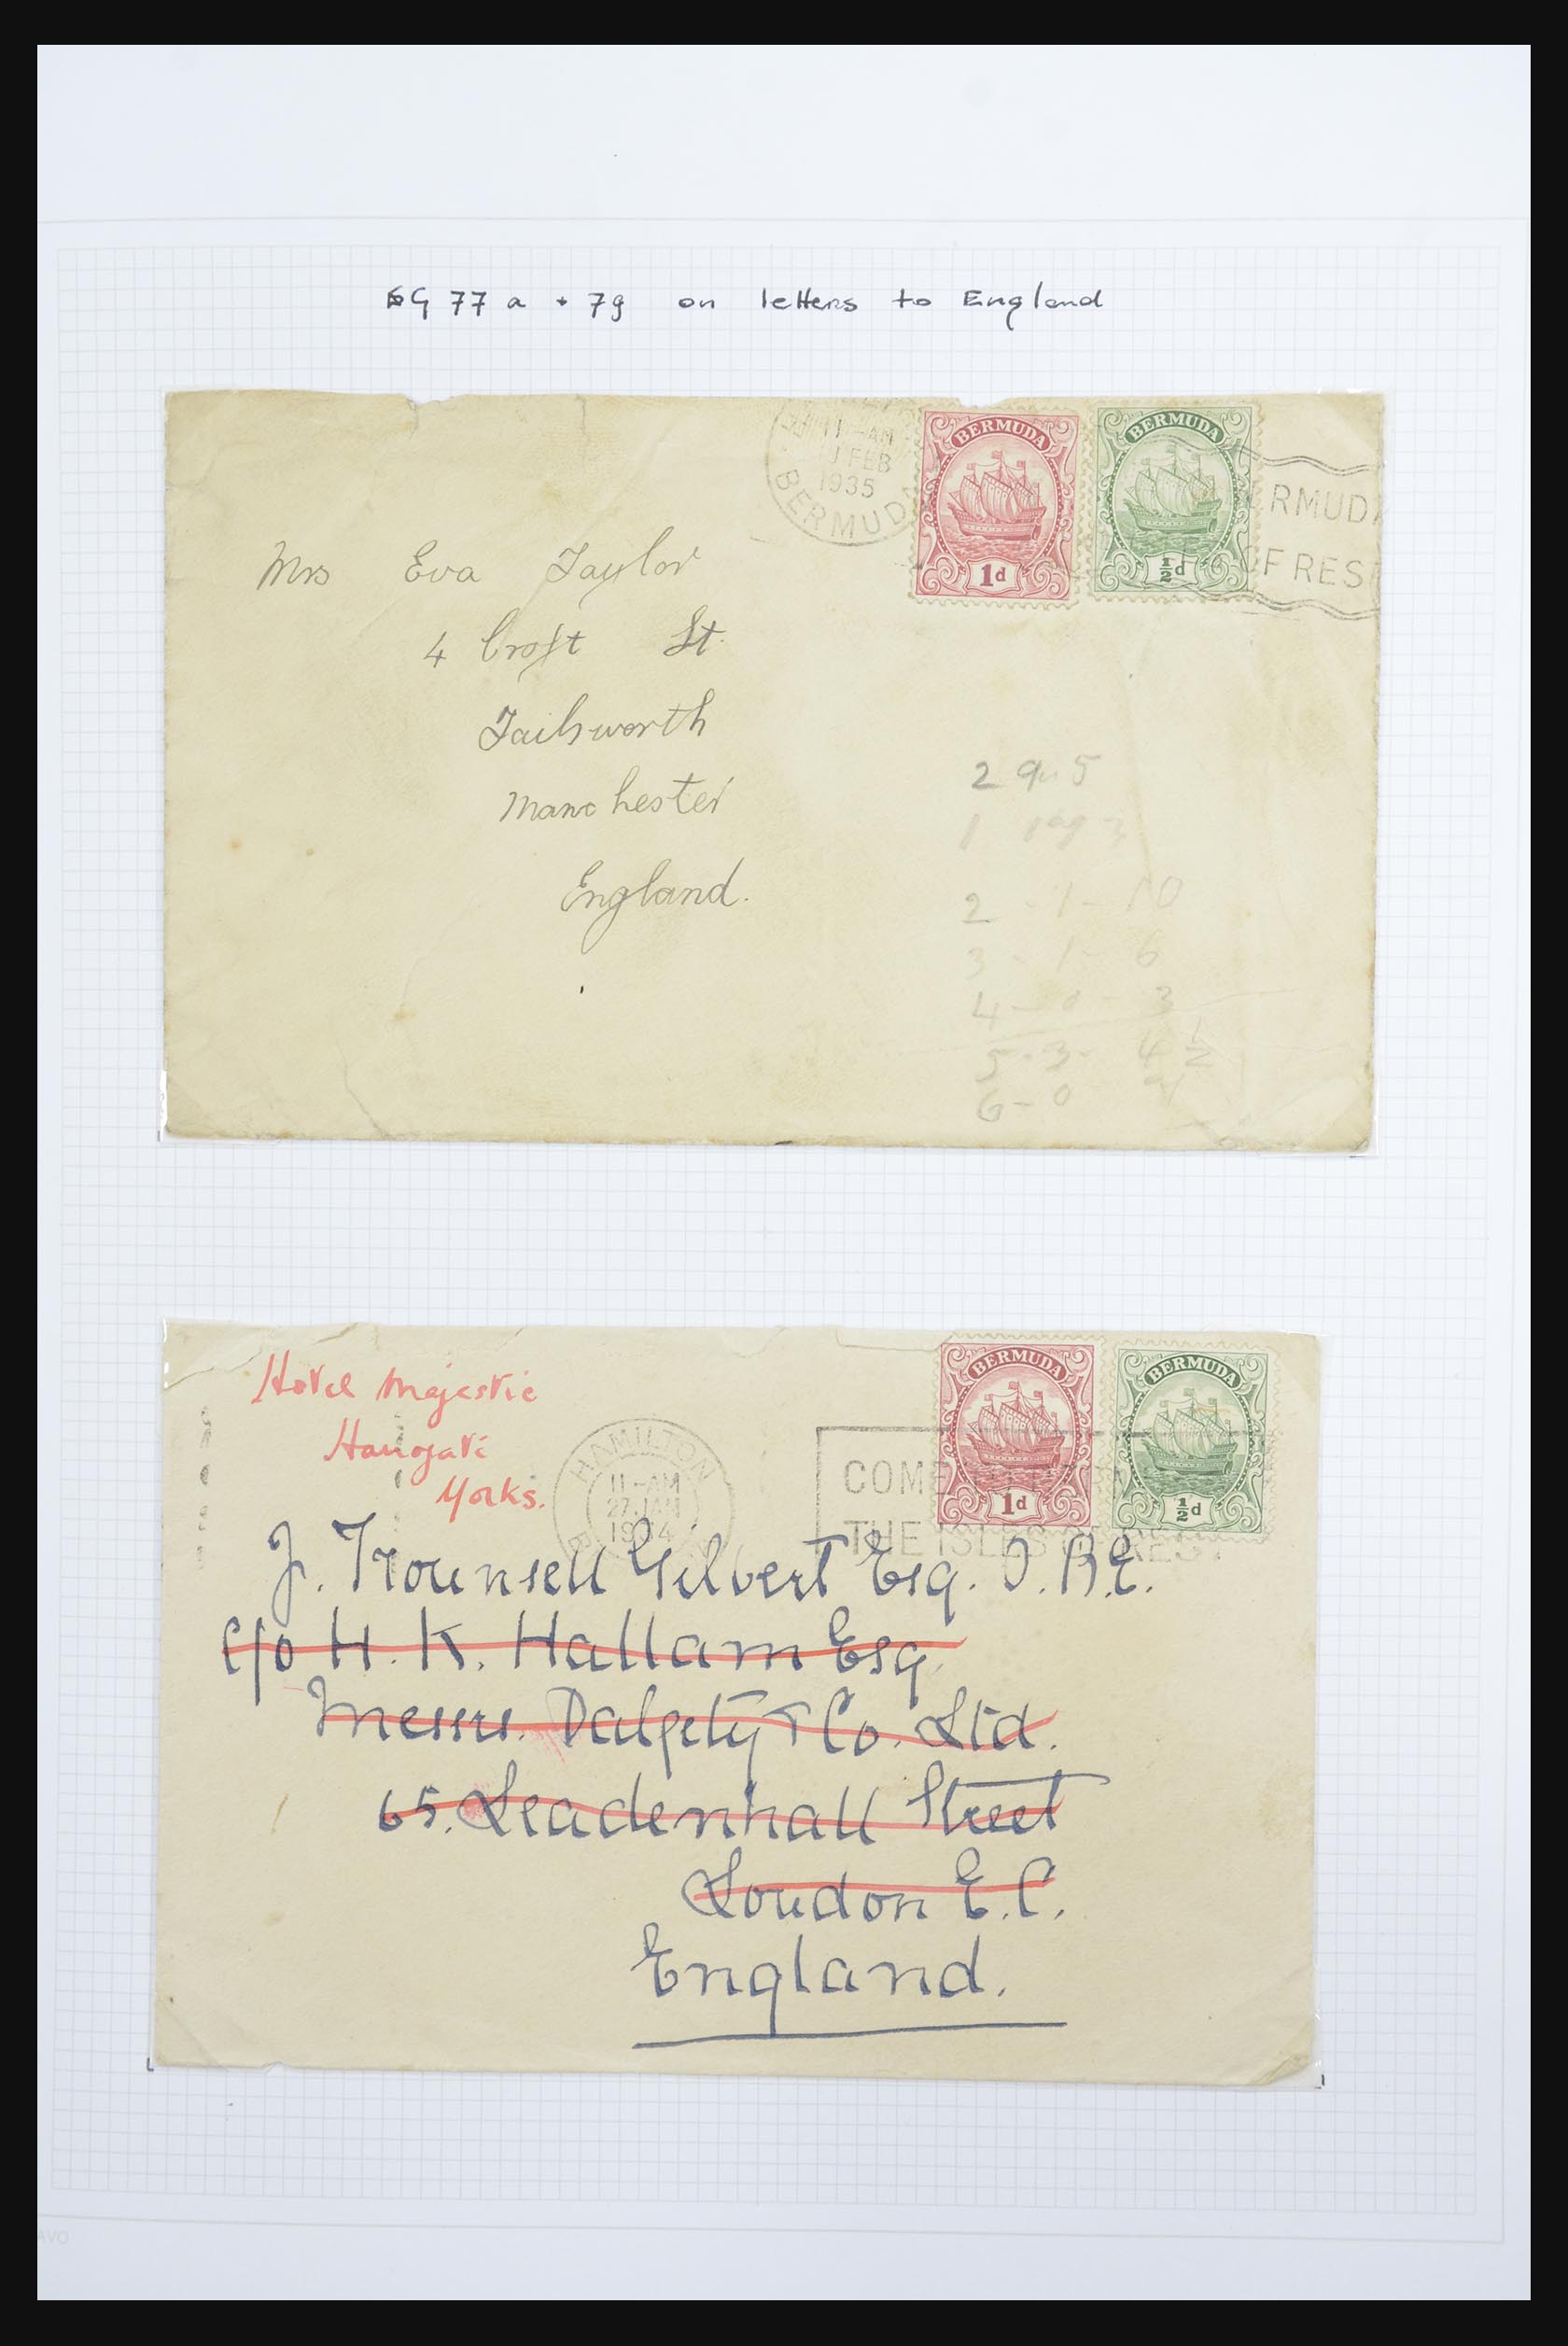 SG 77 a + 79 on letters to England
11-AM
1 FEB
1935
BERMUDA
BERMUDA
1d
BERMUDA
½d
RMUDA
OF REST
Mrs Eva Taylor
4 Croft St.
Failsworth
Manchester
England.
2 5
1
2 - 1 - 10
3 - 1 - 6
4 - 0 - 3
5 - 3 - 4 ½
6 - 0
Hotel Majestic
Harrogate
Yorks.
HAMILTON
11-AM
27 JAN
1934
BERMUDA
1d
BERMUDA
½d
COME
THE ISLES OF REST
J. Trounsell Gilbert Esq. O.B.E.
c/o H. K. Hallam Esq.
Messrs. Dalgety & Co. Ltd.
65. Leadenhall Street
London E.C.
England.
AVO